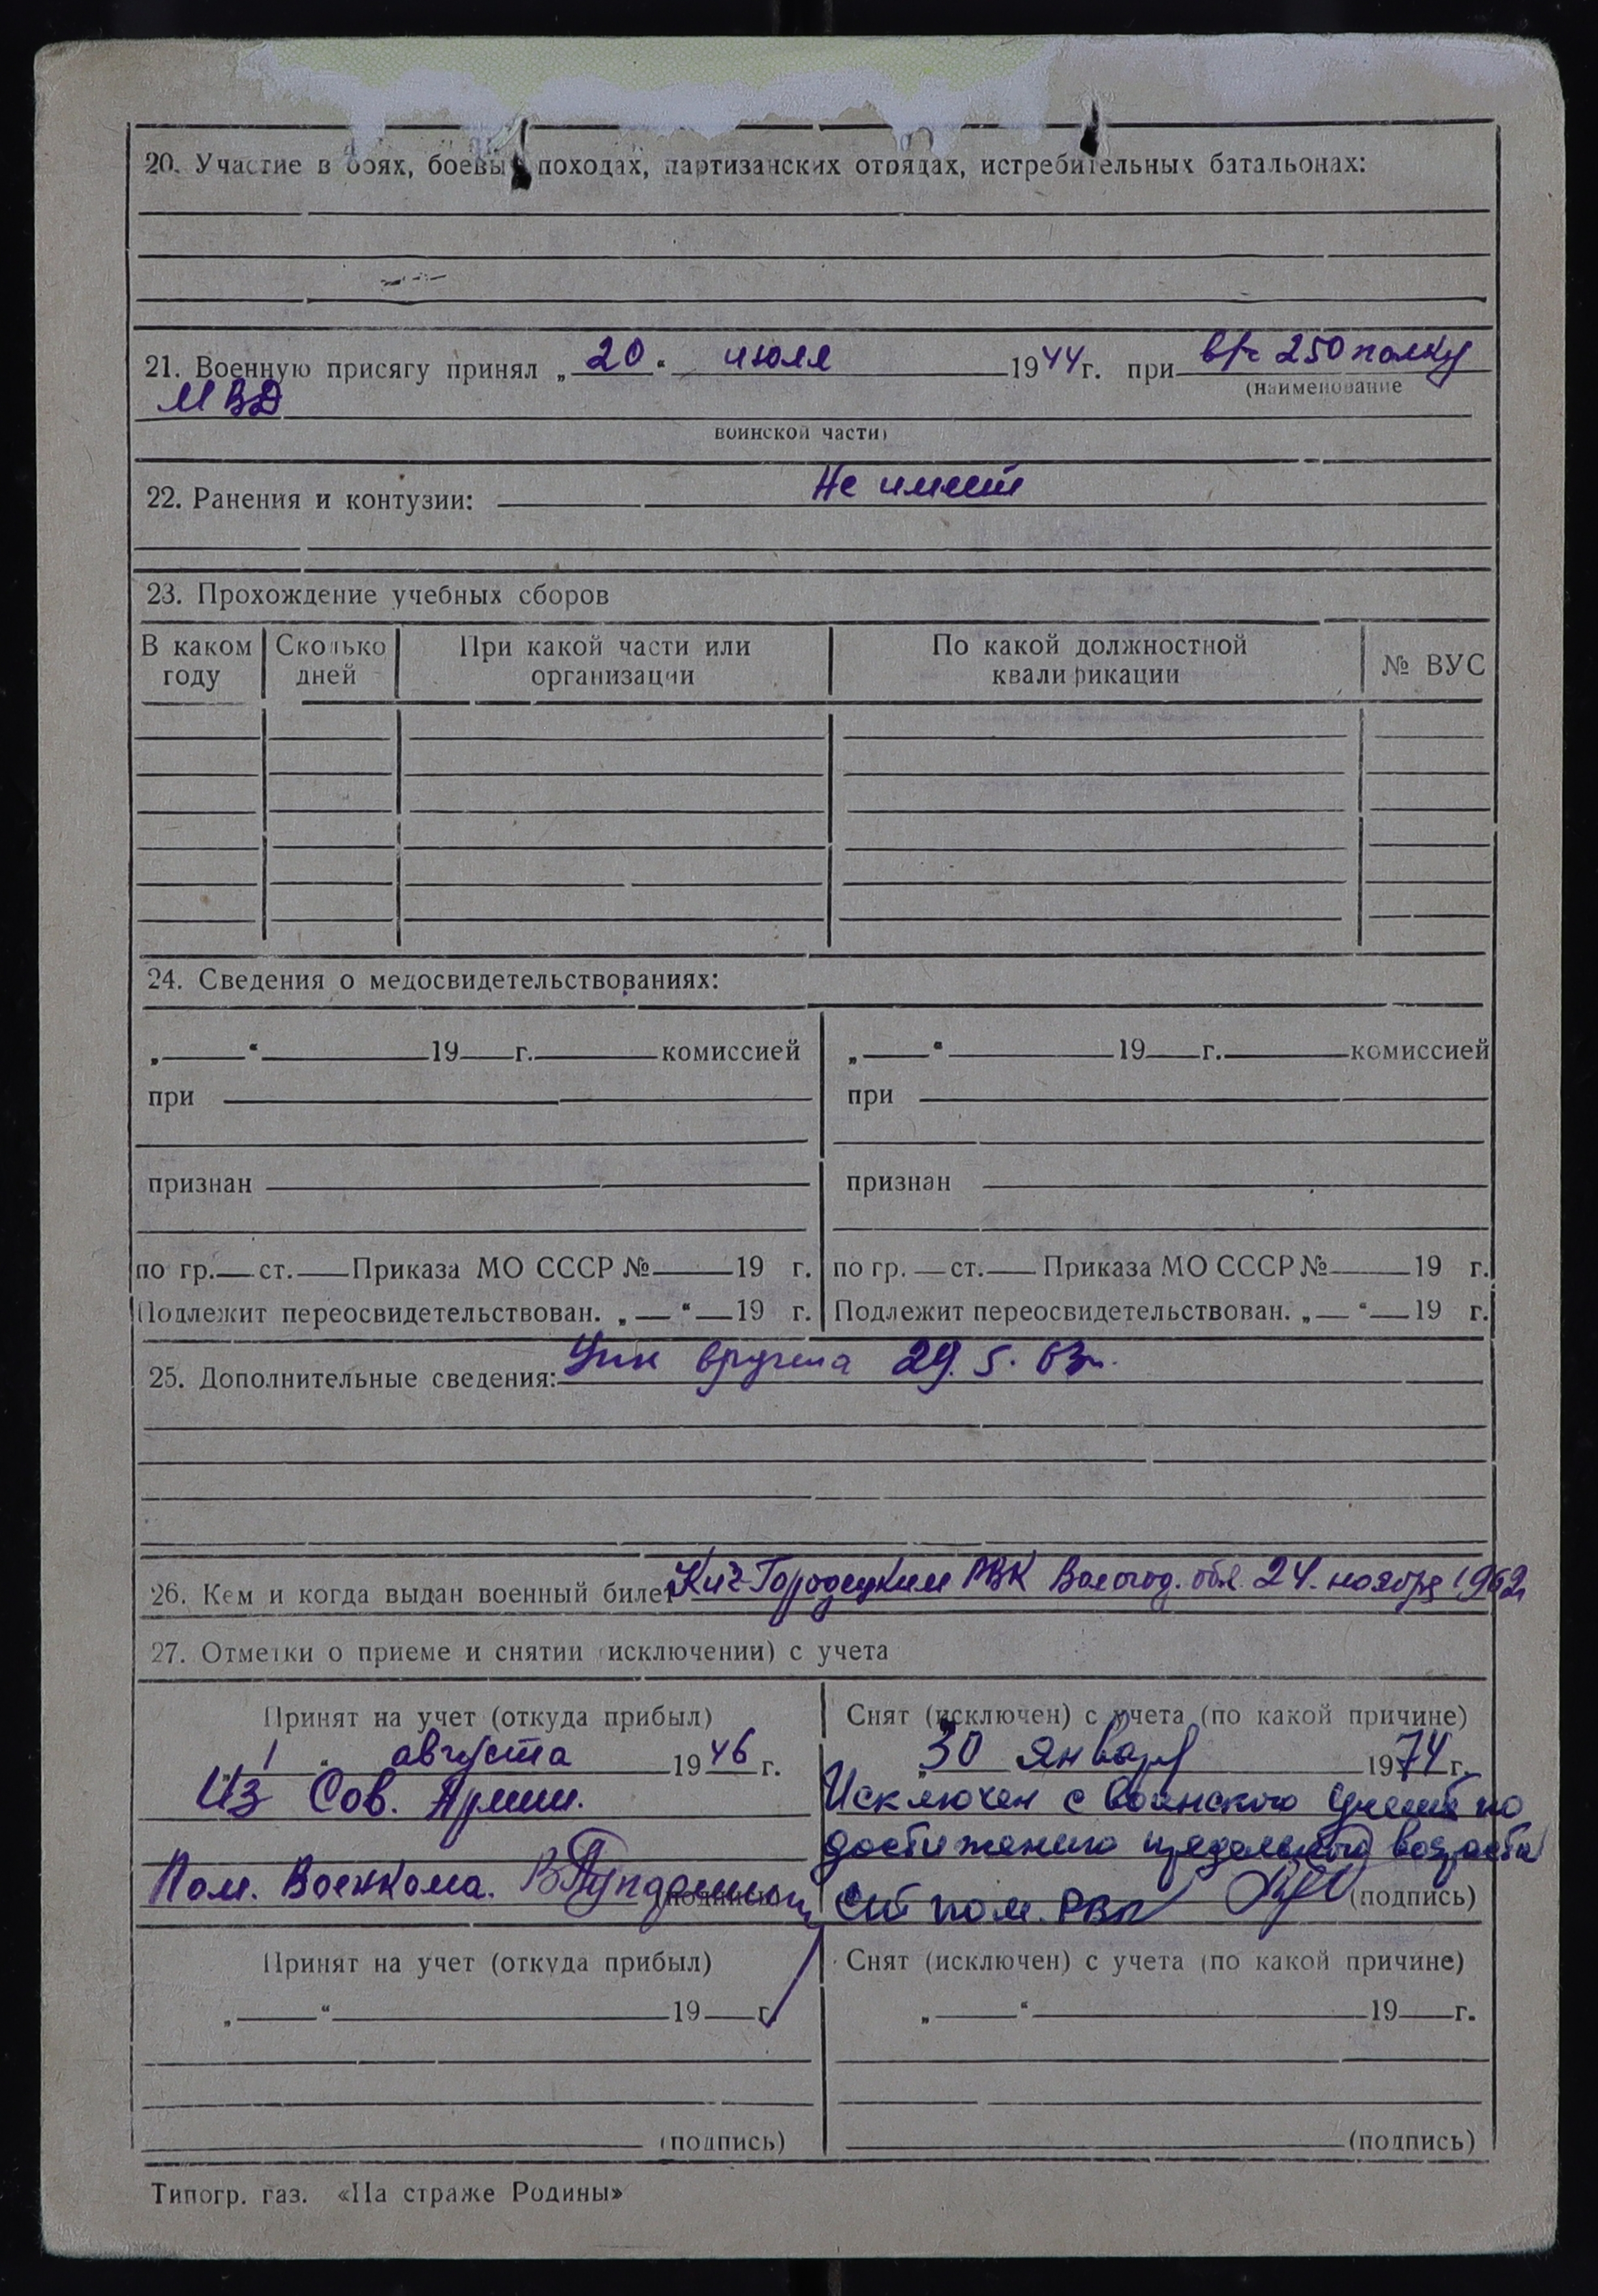 20. Участие в боях, боевых походах, партизанских отрядах, истребительных батальонах:
21. Военную присягу принял „20“ июля 1944 г. при в/ч 250 полку
(наименование
МВД
воинской части)
22. Ранения и контузии: Не имеет
23. Прохождение учебных сборов
В каком году | Сколько дней | При какой части или организации | По какой должностной квалификации | № ВУС
24. Сведения о медосвидетельствованиях:
„ “ 19 г. комиссией
при
признан
по гр. ст. Приказа МО СССР № 19 г.
Подлежит переосвидетельствован. „ “ 19 г.
„ “ 19 г. комиссией
при
признан
по гр. ст. Приказа МО СССР № 19 г.
Подлежит переосвидетельствован. „ “ 19 г.
25. Дополнительные сведения: вручена 29. 5. 63г.
26. Кем и когда выдан военный билет Кич-Городецким РВК Вологод. обл. 24. ноября 1962г
27. Отметки о приеме и снятии (исключении) с учета
Принят на учет (откуда прибыл)
„1“ августа 1946 г.
Из Сов. Армии.
Пом. Военкома.
(подпись)
Снят (исключен) с учета (по какой причине)
„30 января 1974 г.
Исключен с воинского учета по
достижению предельного возраста
Ст пом. РВК (подпись)
Принят на учет (откуда прибыл)
„ “ 19 г.
(подпись)
Снят (исключен) с учета (по какой причине)
„ “ 19 г.
(подпись)
Типогр. газ. «На страже Родины»